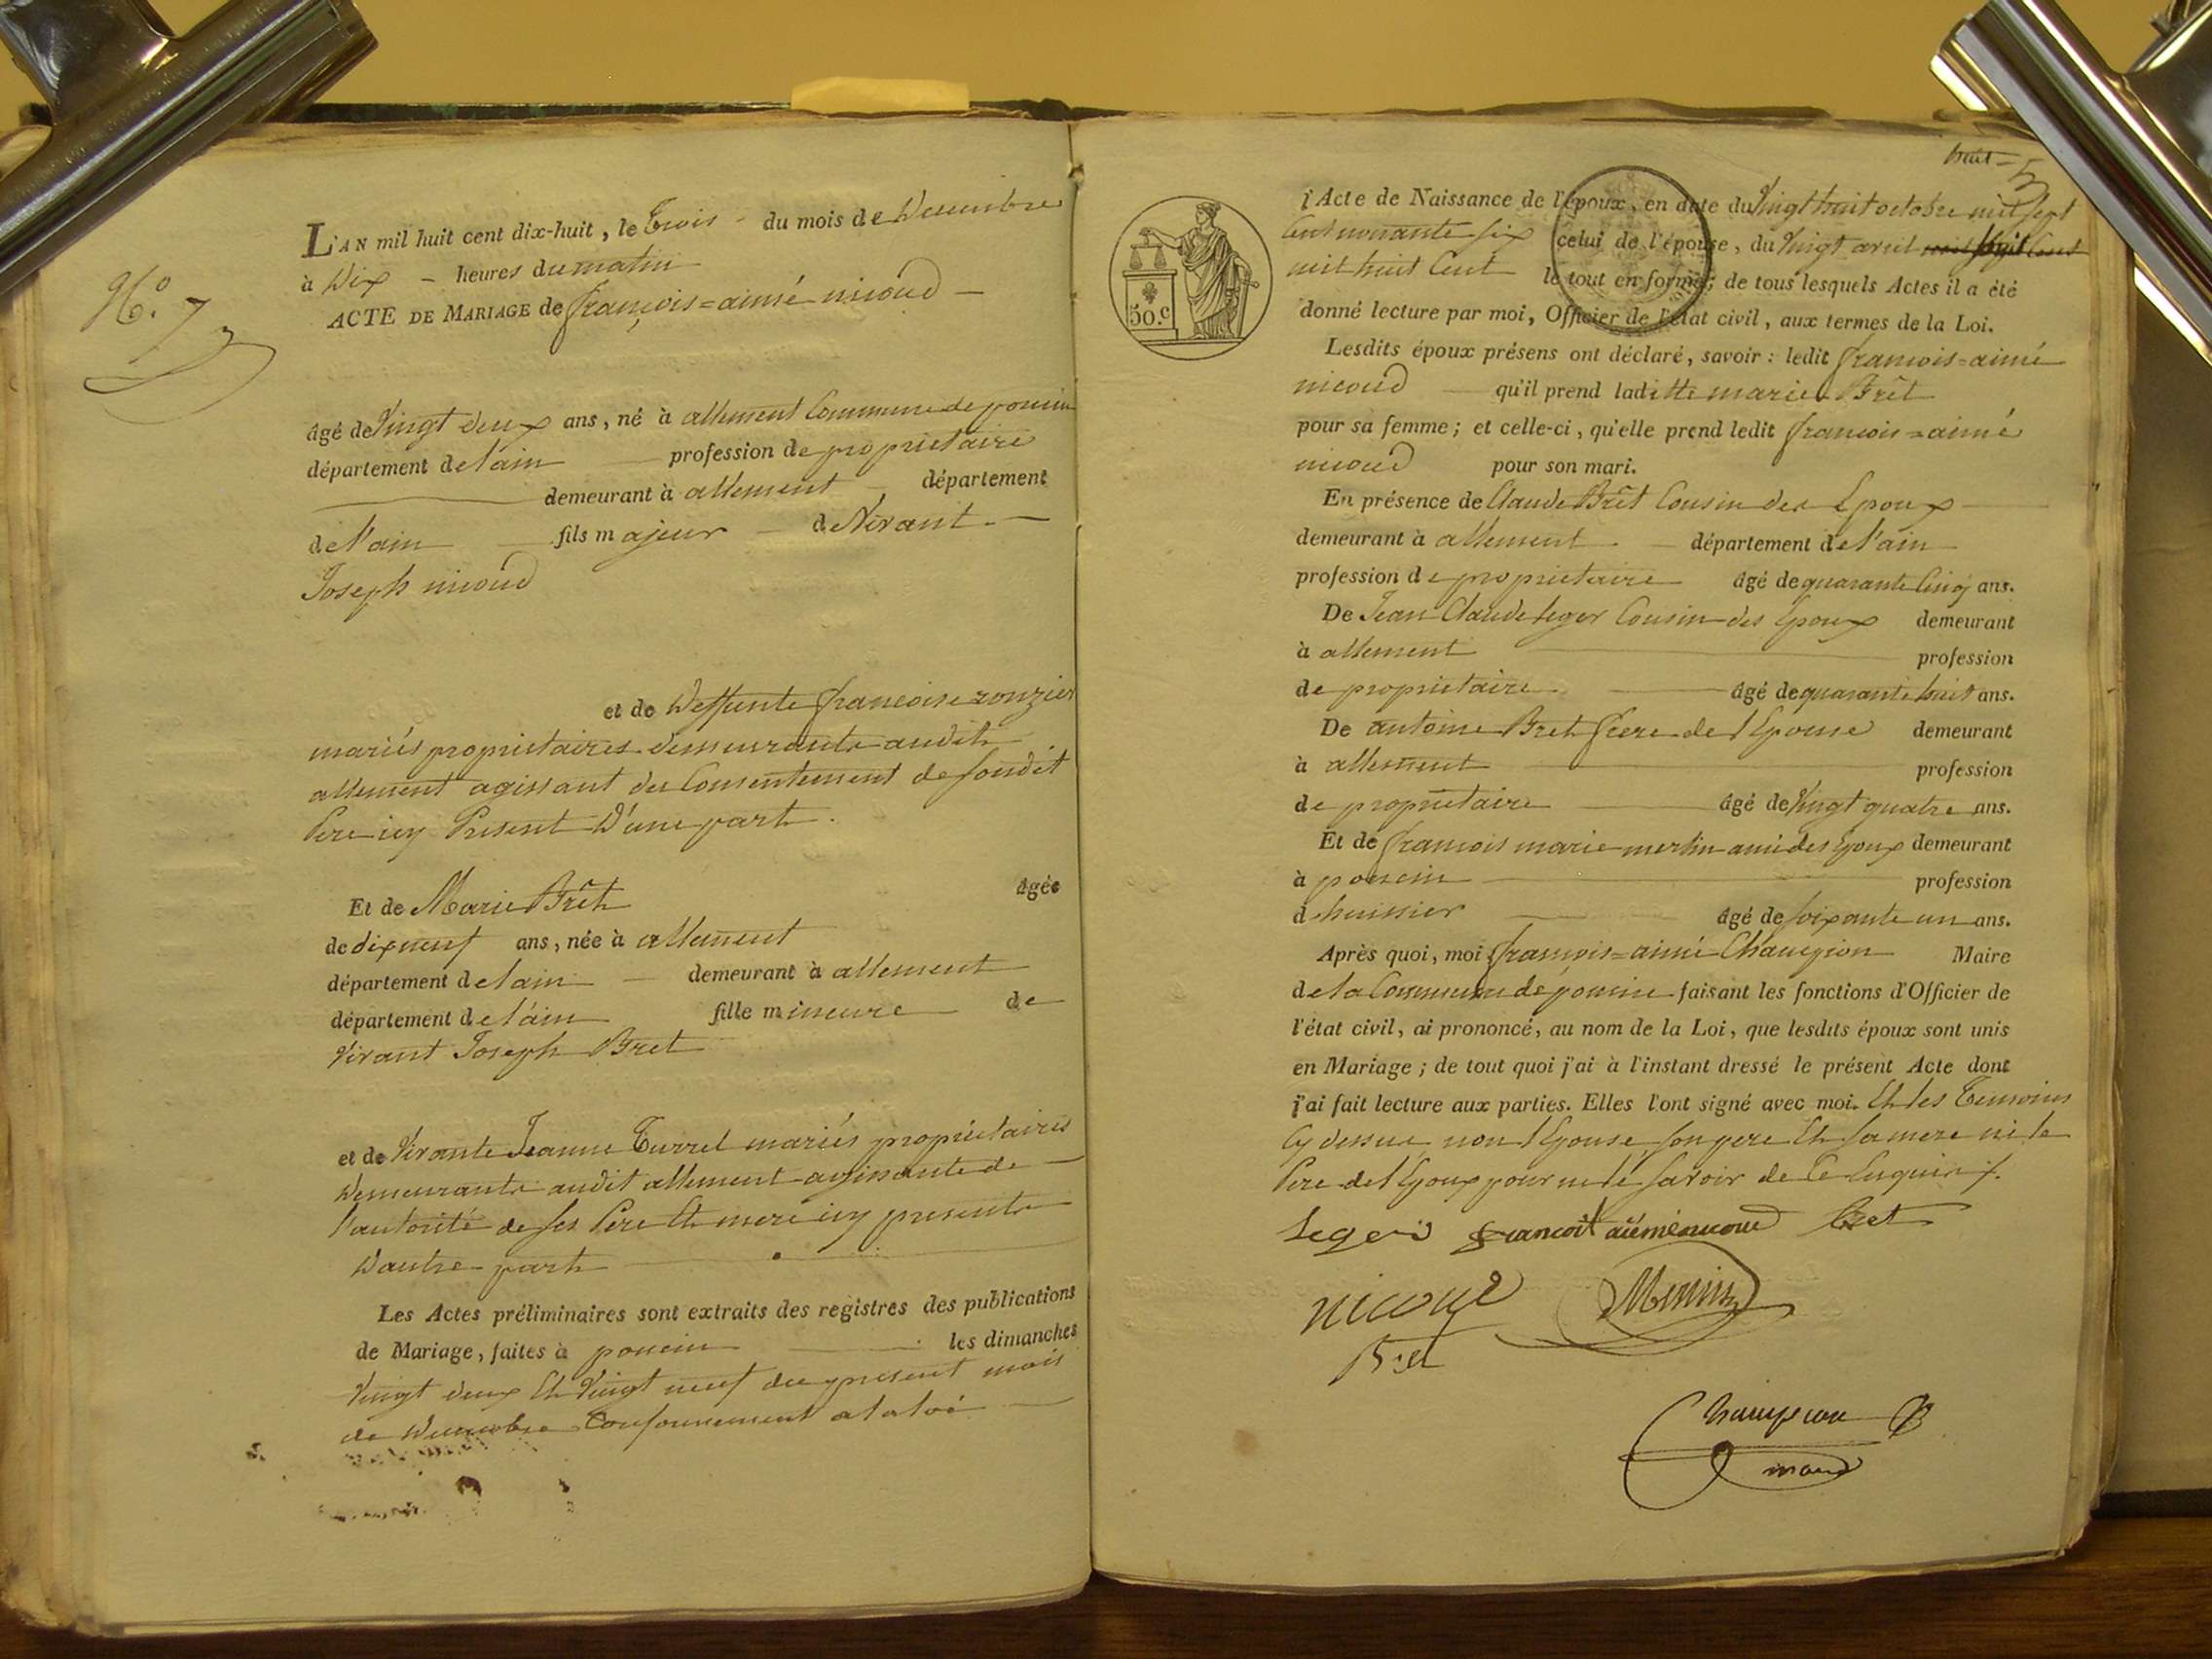 N.º 7
L'AN mil huit cent dix-huit, le Trois - du mois de Decembre
à Dix - heures du matin
ACTE DE MARIAGE de françois=aimé nicoud
âgé de Vingt deux ans, né à allement Commune de poncin
département de l'ain profession de proprietaire
demeurant à allement département
de l'ain fils majeur de Vivant
Joseph nicoud
et de Deffunte francoise ronzier
mariés proprietaires demeurants audit
allement agissant du Consentement de sondit
Pere icy Present D'une part.
Et de Marie Brêt âgée
de dix neuf ans, née à allement
département de lain demeurant à allement
département de l'ain fille mineure de
Vivant Joseph Bret
et de Vivante Jeanne Turrel mariés proprietaires
Demeurants audit allement agissante de
l'autorité de ses Pere Et mere icy presents
D'autre part
Les Actes préliminaires sont extraits des registres des publications
de Mariage, faites à poncin les dimanches
Vingt deux Et Vingt neuf du present mois
de Decembre Conformement a la loi
huit 5
50.c
l'Acte de Naissance de l'époux, en date du Vingt huit octobre mil sept
Cent nonante six celui de l'épouse, du Vingt avril
mil huit Cent le tout en forme; de tous lesquels Actes il a été
donné lecture par moi, Officier de l'état civil, aux termes de la Loi.
Lesdits époux présens ont déclaré, savoir: ledit francois=aimé
nicoud qu'il prend laditte marie Brêt
pour sa femme; et celle-ci, qu'elle prend ledit francois=aimé
nicoud pour son mari.
En présence de Claude Brêt Cousin des Epoux
demeurant à allement département de l'ain
profession de proprietaire âgé de quarante Cinq ans.
De Jean Claude leger Cousin des Epoux demeurant
à allement profession
de proprietaire âgé de quarante huit ans.
De antoine Bret frere de l'Epouse demeurant
à allement profession
de proprietaire âgé de Vingt quatre ans.
Et de francois marie merlin ami des Epoux demeurant
à poncin profession
d'huissier âgé de soixante un ans.
Après quoi, moi françois=aimé Champion Maire
de la Commune de poncin faisant les fonctions d'Officier de
l'état civil, ai prononcé, au nom de la Loi, que lesdits époux sont unis
en Mariage; de tout quoi j'ai à l'instant dressé le présent Acte dont
j'ai fait lecture aux parties. Elles l'ont signé avec moi. Et les Temoins
Cy dessus, non l'Epouse, son pere Et sa mere ni le
Pere de l'Epoux pour ne le savoir de Ce Enquis /.
Leger francoit aiémé nicoud Bret
nicoud
Bret
Champion
maire